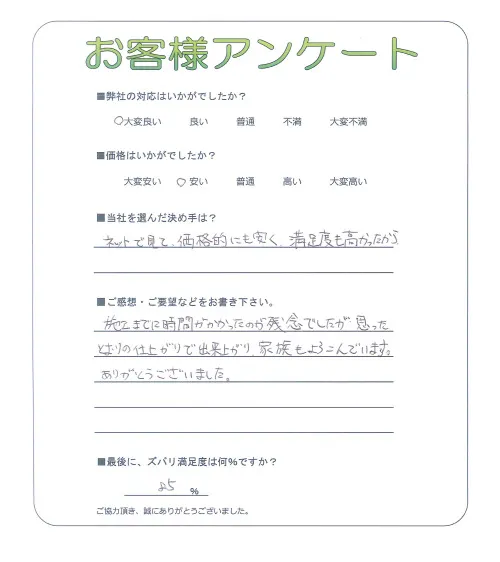 お客様アンケート
■弊社の対応はいかがでしたか？
○大変良い 良い 普通 不満 大変不満
■価格はいかがでしたか？
大変安い ○安い 普通 高い 大変高い
■当社を選んだ決め手は？
ネットで見て、価格的にも安く、満足度も高かったから
■ご感想・ご要望などをお書き下さい。
施工までに時間がかかったのが残念でしたが思った
とおりの仕上がりで出来上がり、家族もよろこんでいます。
ありがとうございました。
■最後に、ズバリ満足度は何％ですか？
85 ％
ご協力頂き、誠にありがとうございました。